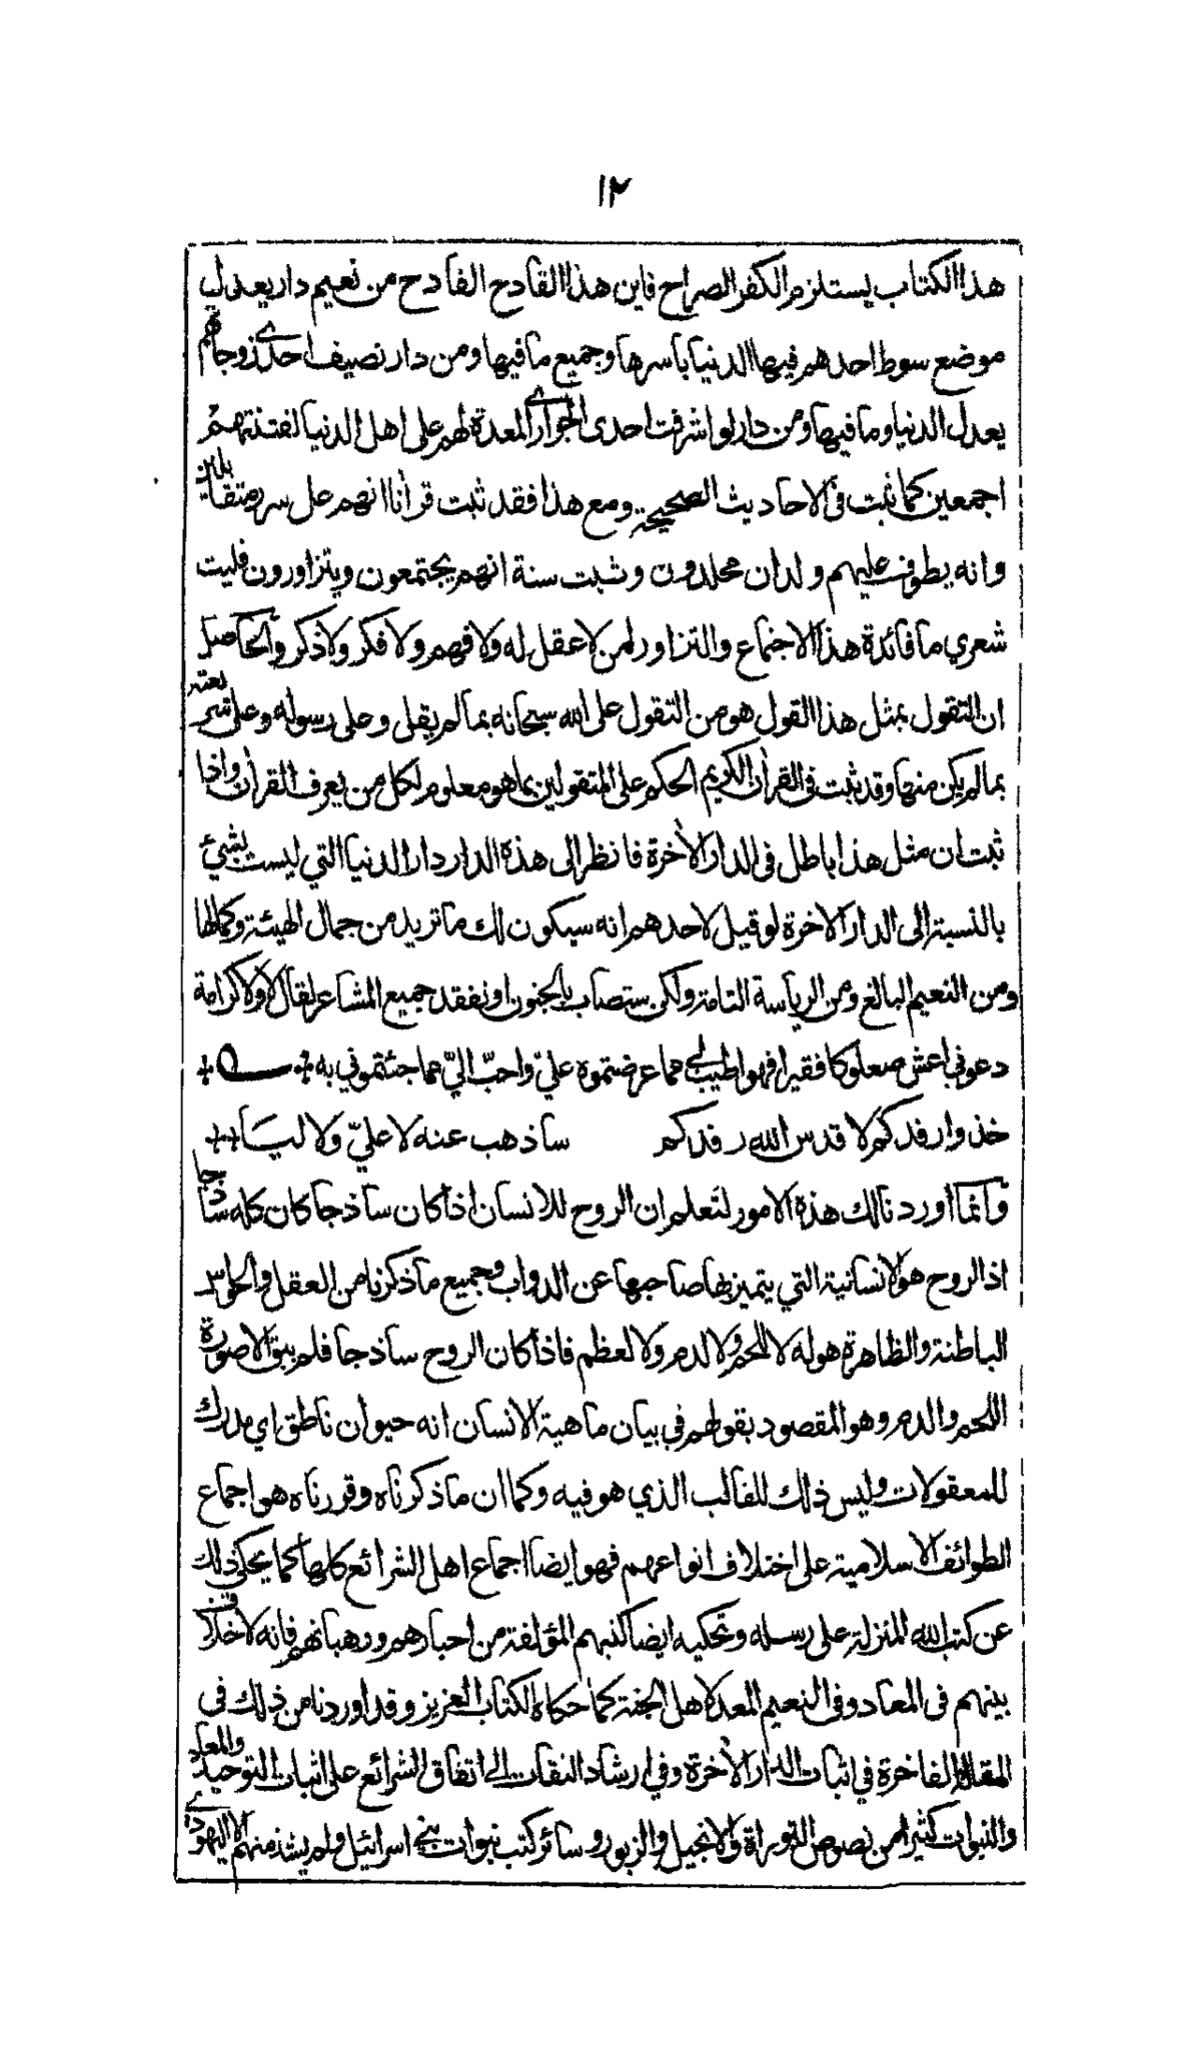 ١٢
هذا الكتاب يستلزم الكفر الصراح فاين هذا القادح الفادح من نعيم دار يعدل
موضع سوط احدهم فيها الدنيا باسرها وجميع ما فيها ومن دار نصيف احدى زوجاتهم
يعدل الدنيا وما فيها ومن دار لو اشرفت احدى الجواري المعدة لهم على اهل الدنيا لفتنتهم
اجمعين كما ثبت في الاحاديث الصحيحة ومع هذا فقد ثبت قرآنا انهم على سرر متقابلين
وانه يطوف عليهم ولدان مخلدون وثبت سنة انهم يجتمعون ويتزاورون فليت
شعري ما فائدة هذا الاجتماع والتزاور لمن لا عقل له ولا فهم ولا فكر ولا ذكر والحاصل
ان التقول بمثل هذا القول هو من التقول على الله سبحانه بما لم يقل وعلى رسوله وعلى شريعته
بما لم يكن منها وقد ثبت في القرآن الكريم الحكم على المتقولين بما هو معلوم لكل من يعرف القرآن واذا
ثبت ان مثل هذا باطل في الدار الآخرة فانظر الى هذه الدار دار الدنيا التي ليست بشيئ
بالنسبة الى الدار الآخرة لو قيل لاحدهم انه سيكون لك ما تريد من جمال الهيئة وكمالها
ومن النعيم البالغ ومن الرياسة التامة ولكن ستصاب بالجنون او نفقد جميع المشاعر لقال لا ولا كرامة
دعوني اعش صعلوكا فقيرا فهو اطيب لي مما عرضتموه عليّ واحبّ اليّ مما جئتموني به
خذوا رفدكم لا قدس الله رفدكم ساذهب عنه لا عليّ ولا ليا
وانما اوردنا لك هذه الامور لتعلم ان الروح للانسان اذا كان ساذجا كان كله ساذجا
اذ الروح هو الانسانية التي يتميز بها صاحبها عن الدواب وجميع ما ذكرنا من العقل والحواس
الباطنة والظاهرة هو له لا للحم ولا لدم ولا لعظم فاذا كان الروح ساذجا فلم يبق الا صورة
اللحم والدم وهو المقصود بقولهم في بيان ماهية الانسان انه حيوان ناطق اي مدرك
للمعقولات وليس ذلك للقالب الذي هو فيه وكما ان ما ذكرناه وقررناه هو اجماع
الطوائف الاسلامية على اختلاف انواعهم فهو ايضا اجماع اهل الشرائع كلها كما يحكي ذلك
عن كتب الله المنزلة على رسله وتحكيه ايضا كتبهم المؤلفة من احبارهم ورهبانهم فانه لا خلاف
بينهم في المعاد وفي النعيم المعد لاهل الجنة كما حكاه الكتاب العزيز وقد اوردنا من ذلك في
المقالة الفاخرة في اثبات الدار الآخرة وفي ارشاد الثقات الى اتفاق الشرائع على اثبات التوحيد والمعاد
والنبوات كثيرا من نصوص التوراة والانجيل والزبور وسائر كتب نبوات بني اسرائيل ولم يشذ منهم الا اليهودي